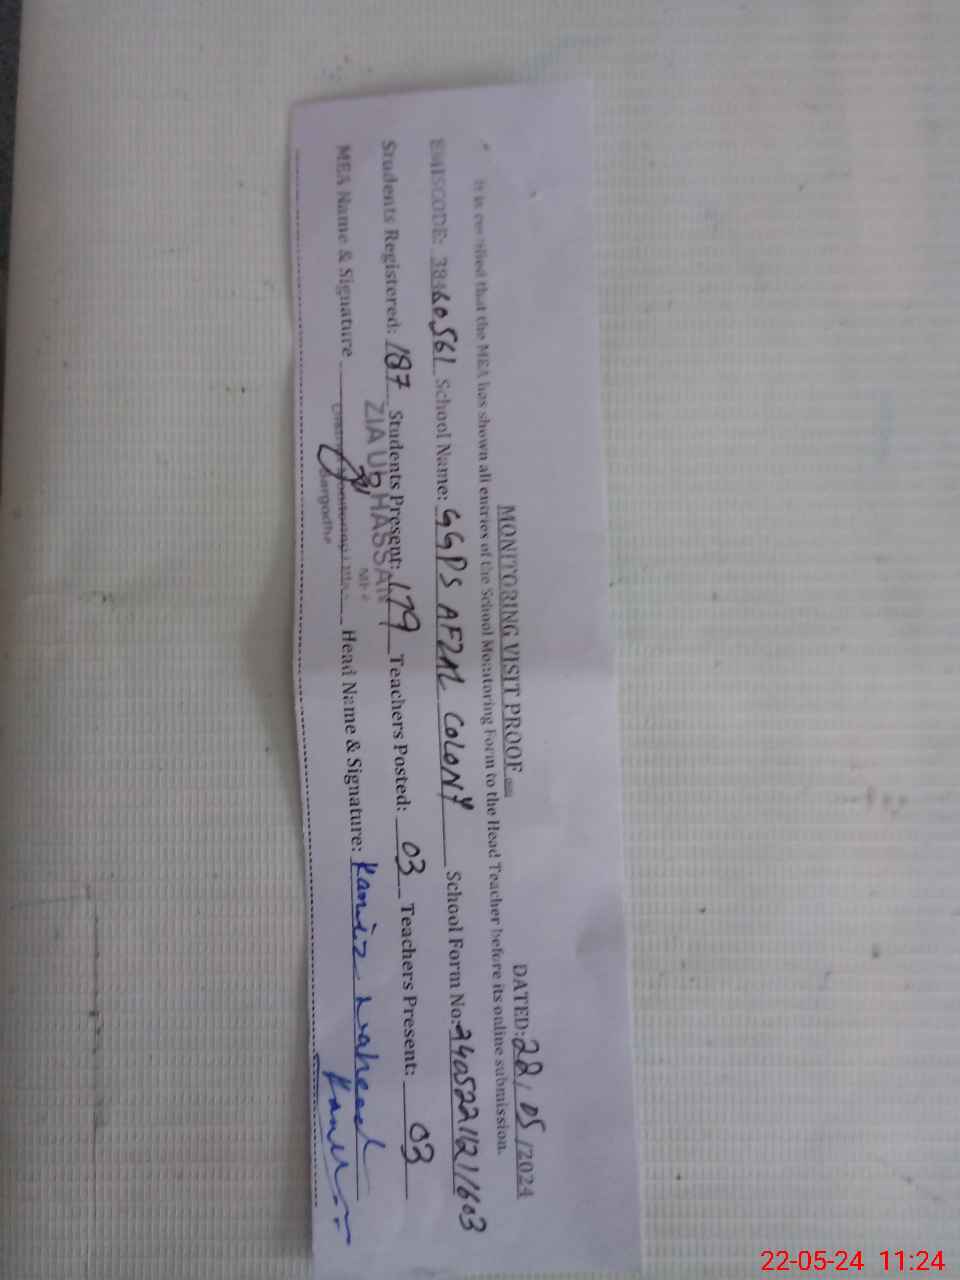 MONITORING VISIT PROOF
DATED: 22/05/2024
It is certified that the MEA has shown all entries of the School Monitoring Form to the Head Teacher before its online submission.
EMISCODE: 38460561 School Name: GGPS AFZAL COLONY School Form No: 24052211211603
Students Registered: 187 Students Present: 179 Teachers Posted: 03 Teachers Present: 03
ZIA UL HASSAN
MEA Name & Signature Head Name & Signature: Kaneez Waheed
Sargodha
22-05-24 11:24